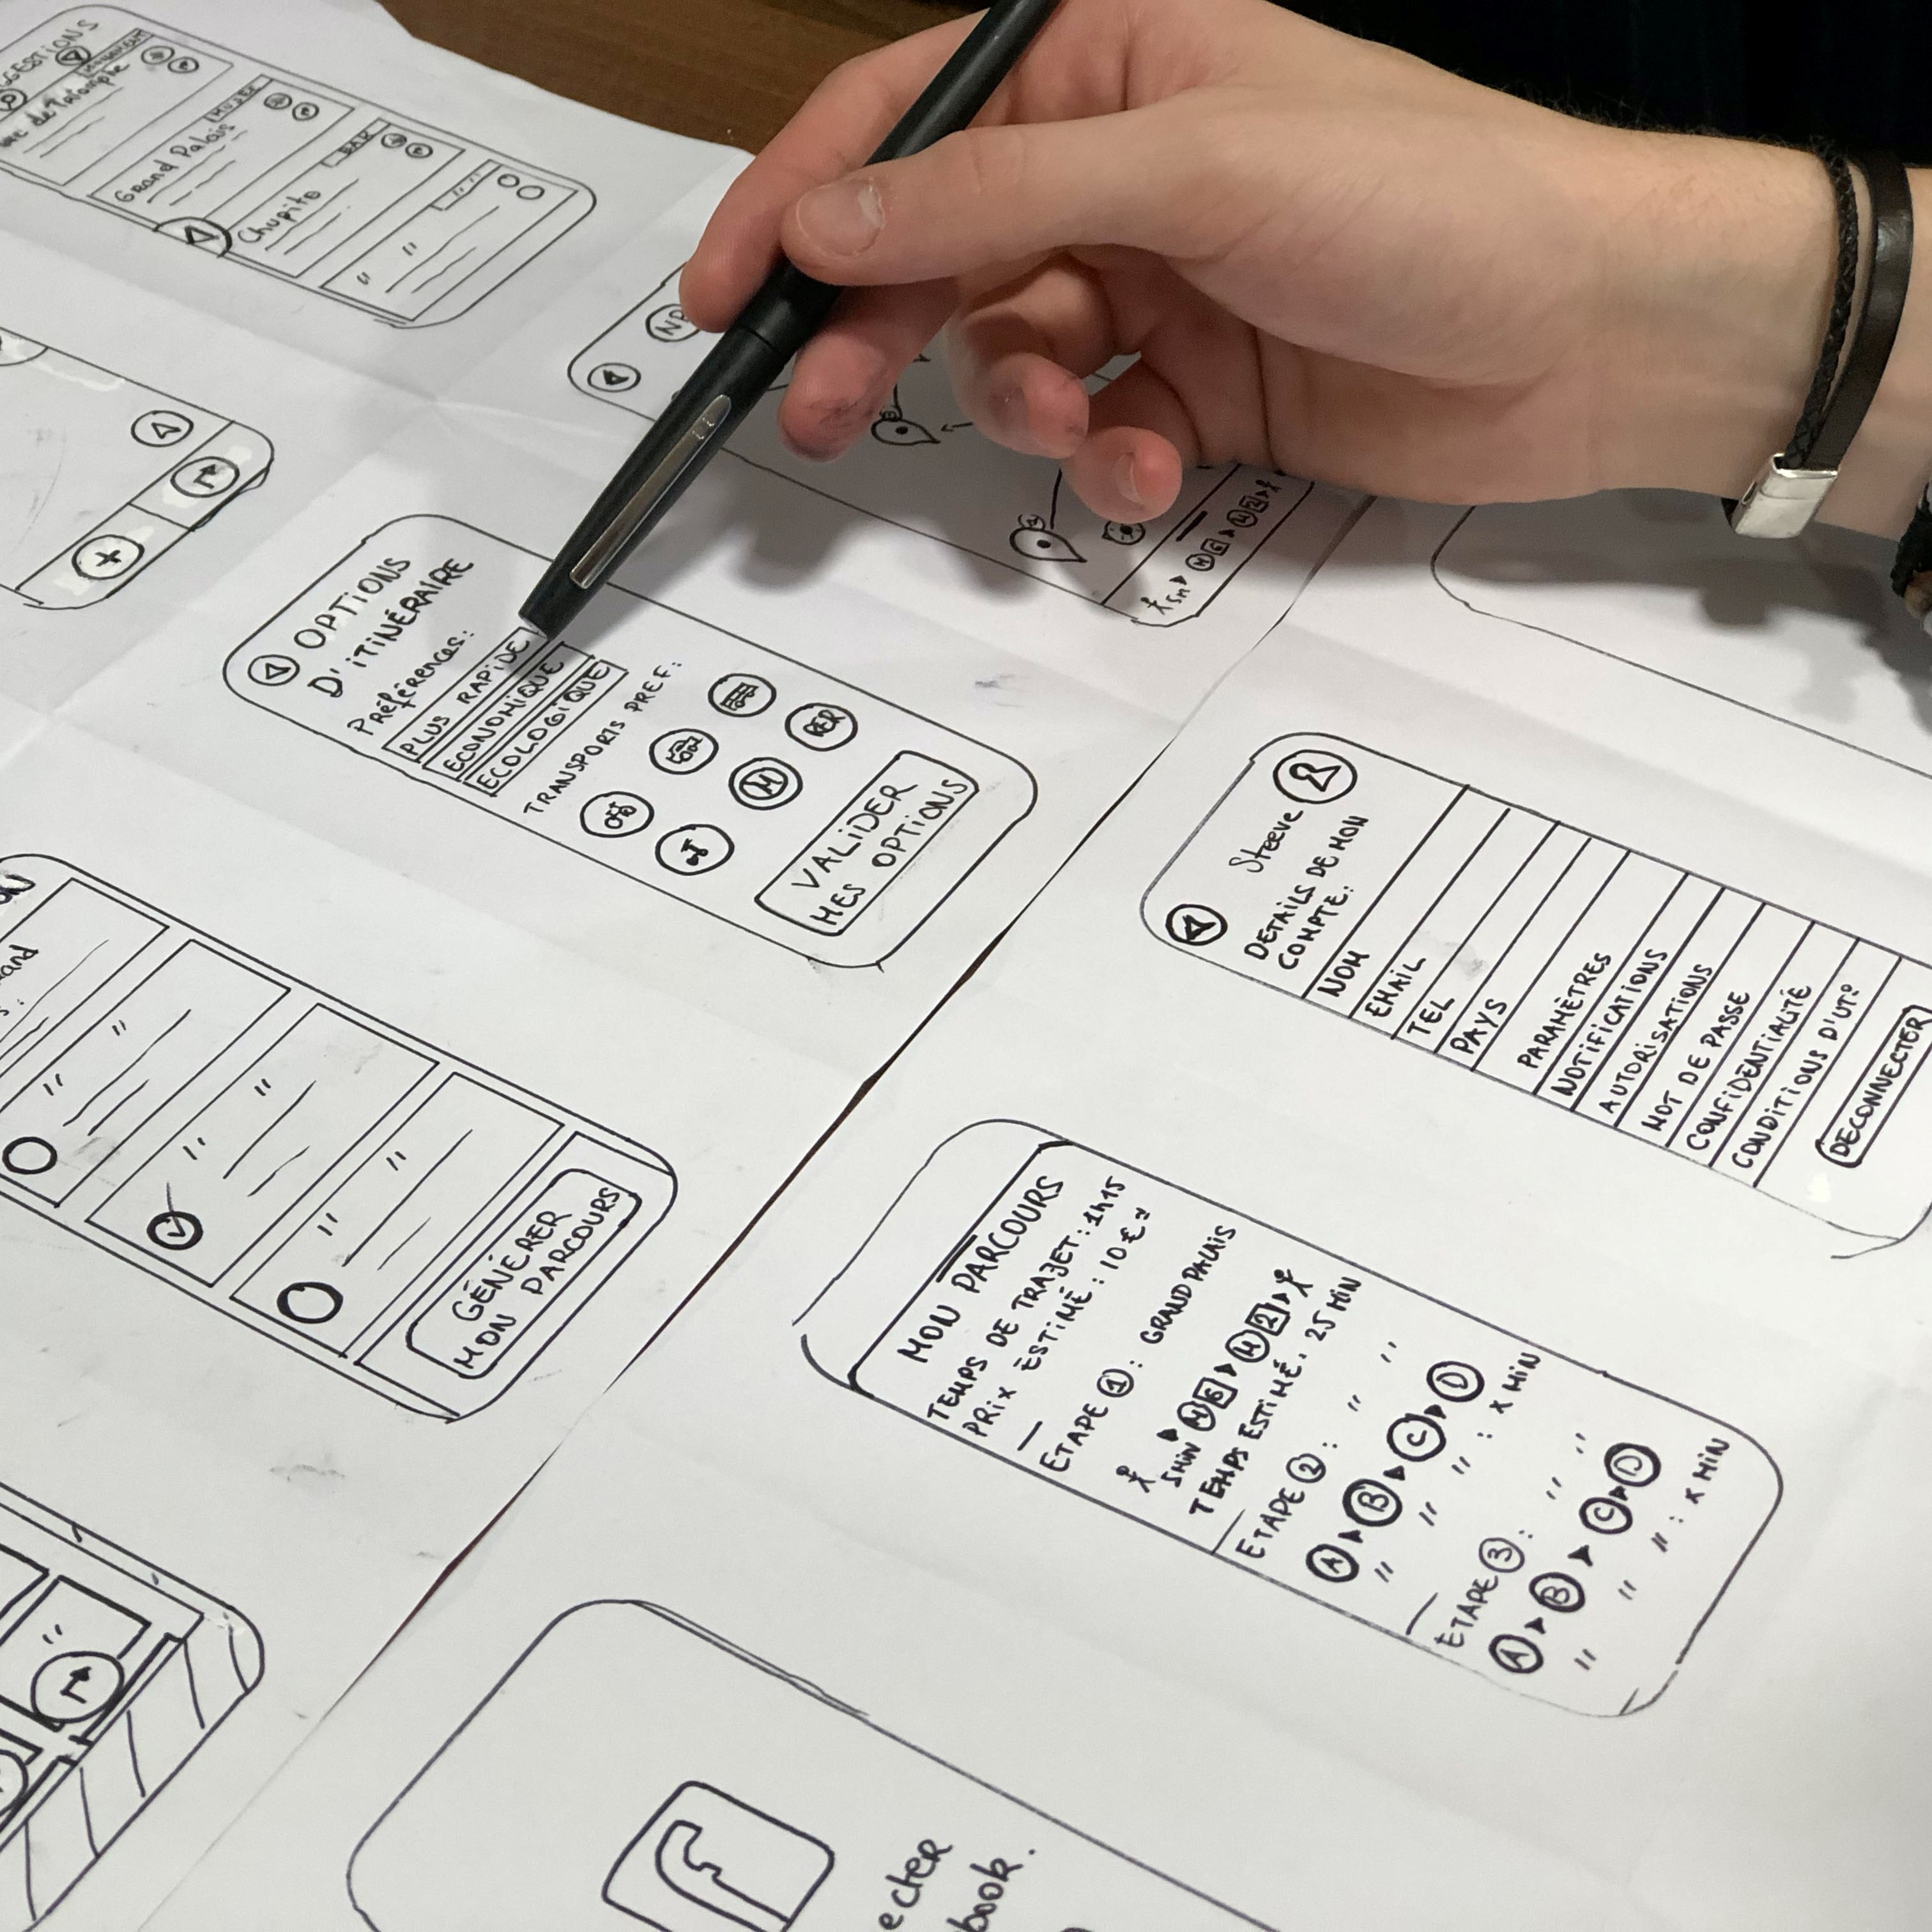 Grand Palais
MUSÉE
Chupito
BAR
OPTIONS
D'ITINÉRAIRE
Préférences:
PLUS RAPIDE
ECONOMIQUE
ECOLOGIQUE
TRANSPORTS PREF:
RER
M
VALIDER
MES OPTIONS
GÉNÉRER
MON PARCOURS
Steeve
DETAILS DE MON
COMPTE:
NOM
EMAIL
TEL
PAYS
PARAMÈTRES
NOTIFICATIONS
AUTORISATIONS
MOT DE PASSE
CONFIDENTIALITÉ
CONDITIONS D'UT°
DECONNECTER
MON PARCOURS
TEMPS DE TRAJET: 1h15
PRIX ESTIMÉ: 10€
ETAPE 1: GRAND PALAIS
5MIN M 6 M 2
TEMPS ESTIMÉ. 25 MIN
ETAPE 2: " "
A B C D
" " " : X MIN
ETAPE 3: " "
A B C D
" " " : X MIN
f